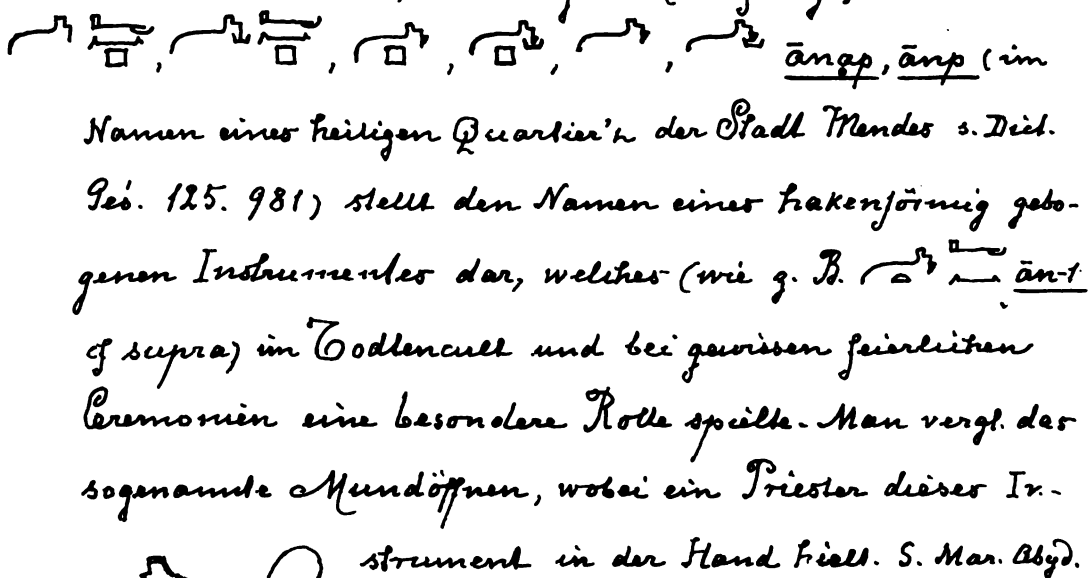 , , , , , ānap, ānp (im
Namen eines heiligen Quartier's der Stadt Mendes s. Dict.
Géo. 125. 981) stellt den Namen eines hakenförmig gebo-
genen Instrumentes dar, welches (wie z. B. ān-t
cf supra) im Todtencult und bei gewissen feierlichen
Ceremonien eine besondere Rolle spielte. Man vergl. das
sogenannte Mundöffnen, wobei ein Priester dieses In-
strument in der Hand hielt. S. Mar. Abyd.